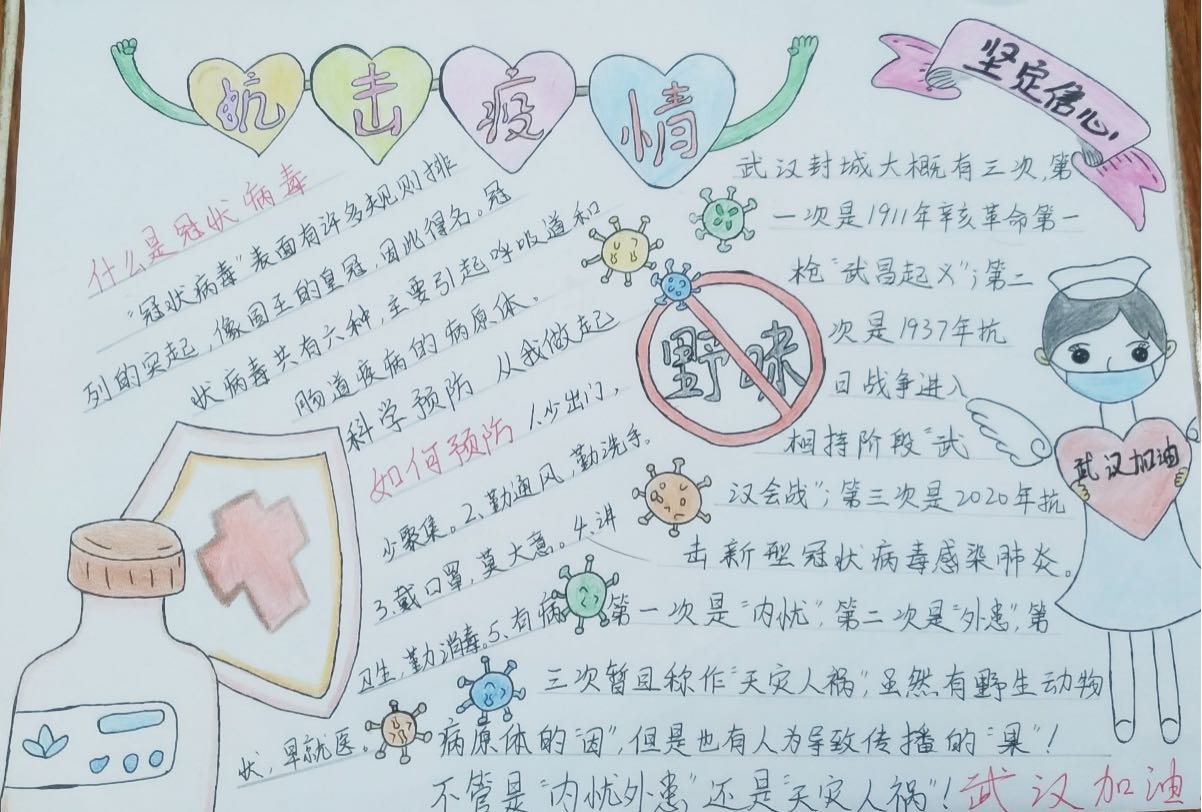 抗击疫情
坚定信心
什么是冠状病毒
"冠状病毒"表面有许多规则排
列的突起，像国王的皇冠，因此得名。冠
状病毒共有六种，主要引起呼吸道和
肠道疾病的病原体。
科学预防 从我做起
如何预防 1.少出门，
少聚集。2.勤通风，勤洗手。
3.戴口罩，莫大意。4.讲
卫生，勤消毒。5.有病
状，早就医。
武汉封城大概有三次，第
一次是1911年辛亥革命第一
枪"武昌起义"；第二
次是1937年抗
日战争进入
相持阶段"武
汉会战"；第三次是2020年抗
击新型冠状病毒感染肺炎。
第一次是"内忧"，第二次是"外患"，第
三次暂且称作"天灾人祸"，虽然有野生动物
病原体的"因"，但是也有人为导致传播的"果"！
不管是"内忧外患"还是"天灾人祸"！武汉加油
野味
武汉加油